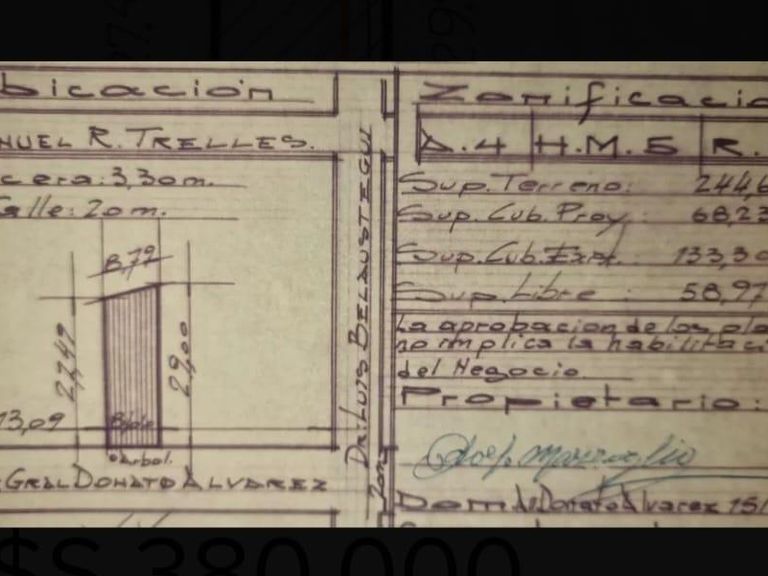 bicación
NUEL R. TRELLES.
cera: 3,30 m.
alle: 20 m.
8,72
29,00
13,09
Arbol.
GRAL DONATO ALVAREZ
DR. LUIS BELAUSTEGUI
20m
Zonificacio
A.4 H.M.5 R.
Sup. Terreno: 244,6
Sup. Cub. Proy: 68,23
Sup. Cub. Exist. 133,30
Sup. Libre: 58,97
La aprobacion de los pla
no implica la habilitaci
del Negocio
Propietario:
Dom. Av. Donato Alvarez 151
$S 380.000